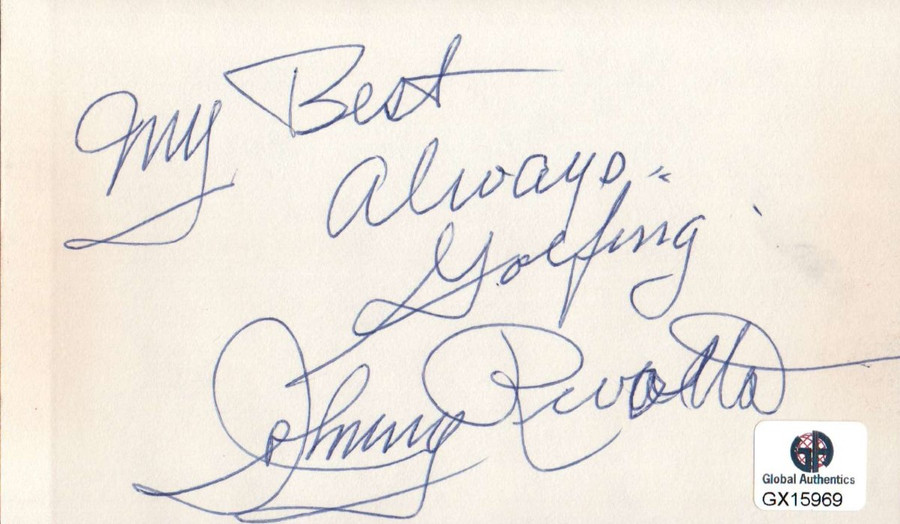 My Best
Always..
Golfing
Johnny Revolta
Global Authentics
GX15969